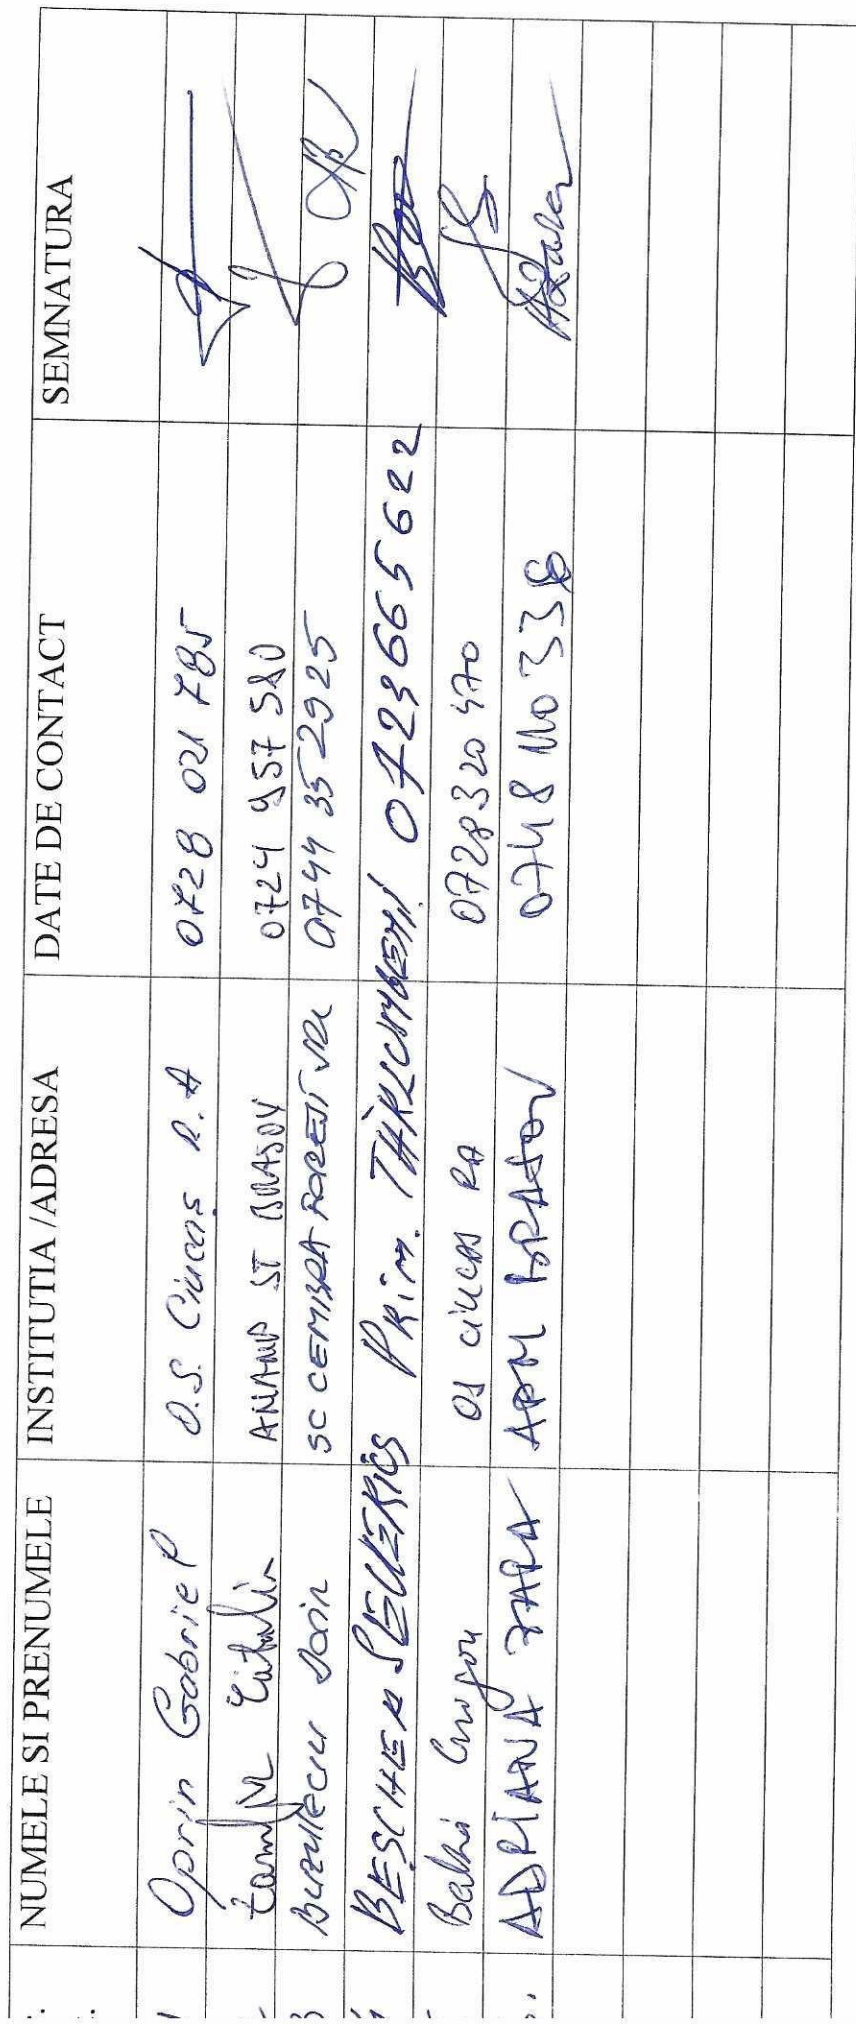 NUMELE SI PRENUMELE INSTITUTIA /ADRESA DATE DE CONTACT SEMNATURA
Oprin Gabriel O.S. Ciucas R.A 0728 021 785
Catalin ANANP ST BRASOV 0724 957 580
Buzuleciu Sorin SC CEMBRA FOREST SRL 0744 352925
BESCHEA SEVERIUS PRIM. TĂRLUNGENI 0723665622
OS CIUCAS RA 0728320470
ADRIANA ZARA APM BRASOV 0748110338